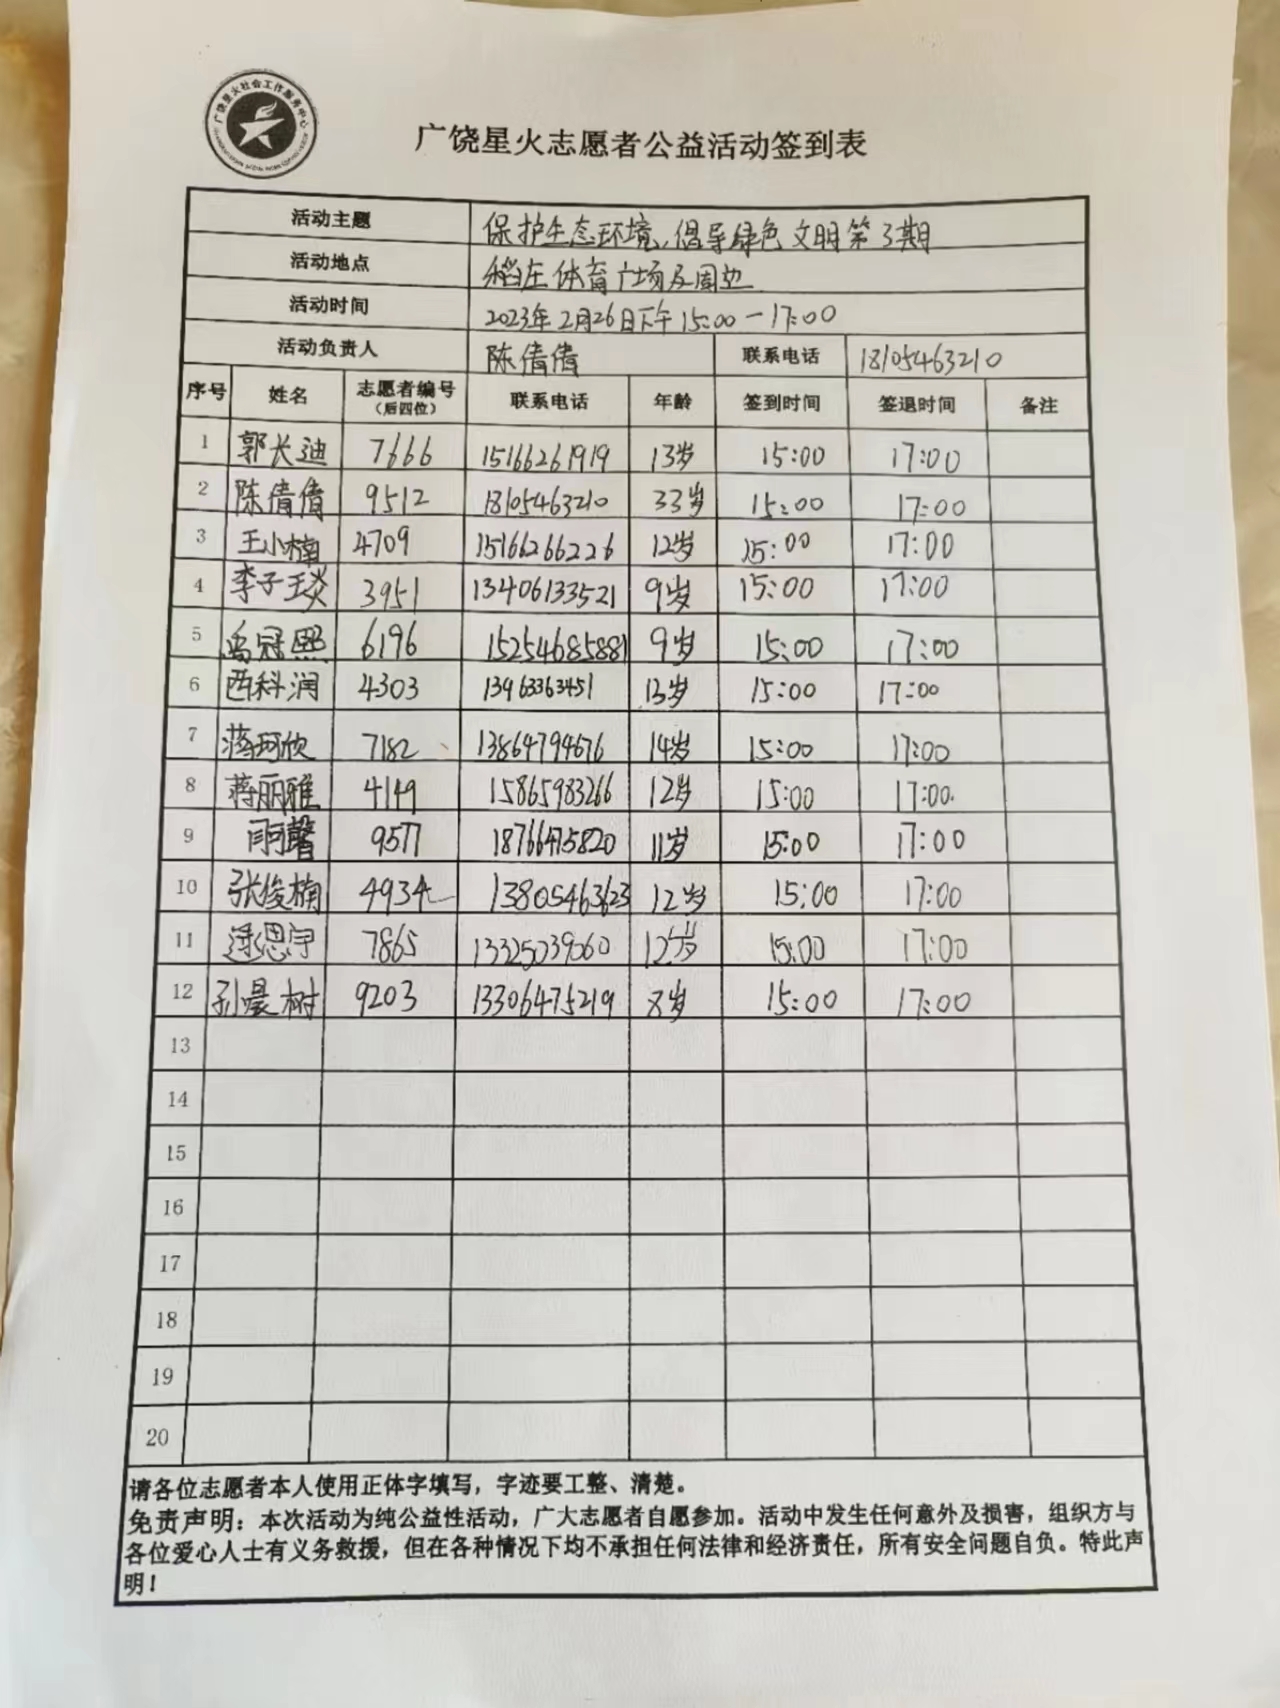 广饶星火社会工作服务中心
广饶星火志愿者公益活动签到表
活动主题 保护生态环境,倡导绿色文明第3期
活动地点 稻庄体育广场及周边
活动时间 2023年2月26日下午15:00—17:00
活动负责人 陈倩倩 联系电话 18105463210
序号 姓名 志愿者编号(后四位) 联系电话 年龄 签到时间 签退时间 备注
1 郭长迪 7666 15166261919 13岁 15:00 17:00
2 陈倩倩 9512 18105463210 33岁 15:00 17:00
3 王小楠 4709 15166266226 12岁 15:00 17:00
4 李子琰 3951 13406133521 9岁 15:00 17:00
5 冠熙 6196 15254685881 9岁 15:00 17:00
6 西科润 4303 13963363451 13岁 15:00 17:00
7 蒋珂欣 7182 13864794676 14岁 15:00 17:00
8 蒋丽雅 4149 15865983266 12岁 15:00 17:00
9 馨 9577 18766475820 11岁 15:00 17:00
10 张俊楠 4934 13805463623 12岁 15:00 17:00
11 思宇 7865 13325039060 12岁 15:00 17:00
12 孙晨树 9203 13306475219 8岁 15:00 17:00
13
14
15
16
17
18
19
20
请各位志愿者本人使用正体字填写，字迹要工整、清楚。
免责声明：本次活动为纯公益性活动，广大志愿者自愿参加。活动中发生任何意外及损害，组织方与
各位爱心人士有义务救援，但在各种情况下均不承担任何法律和经济责任，所有安全问题自负。特此声
明！